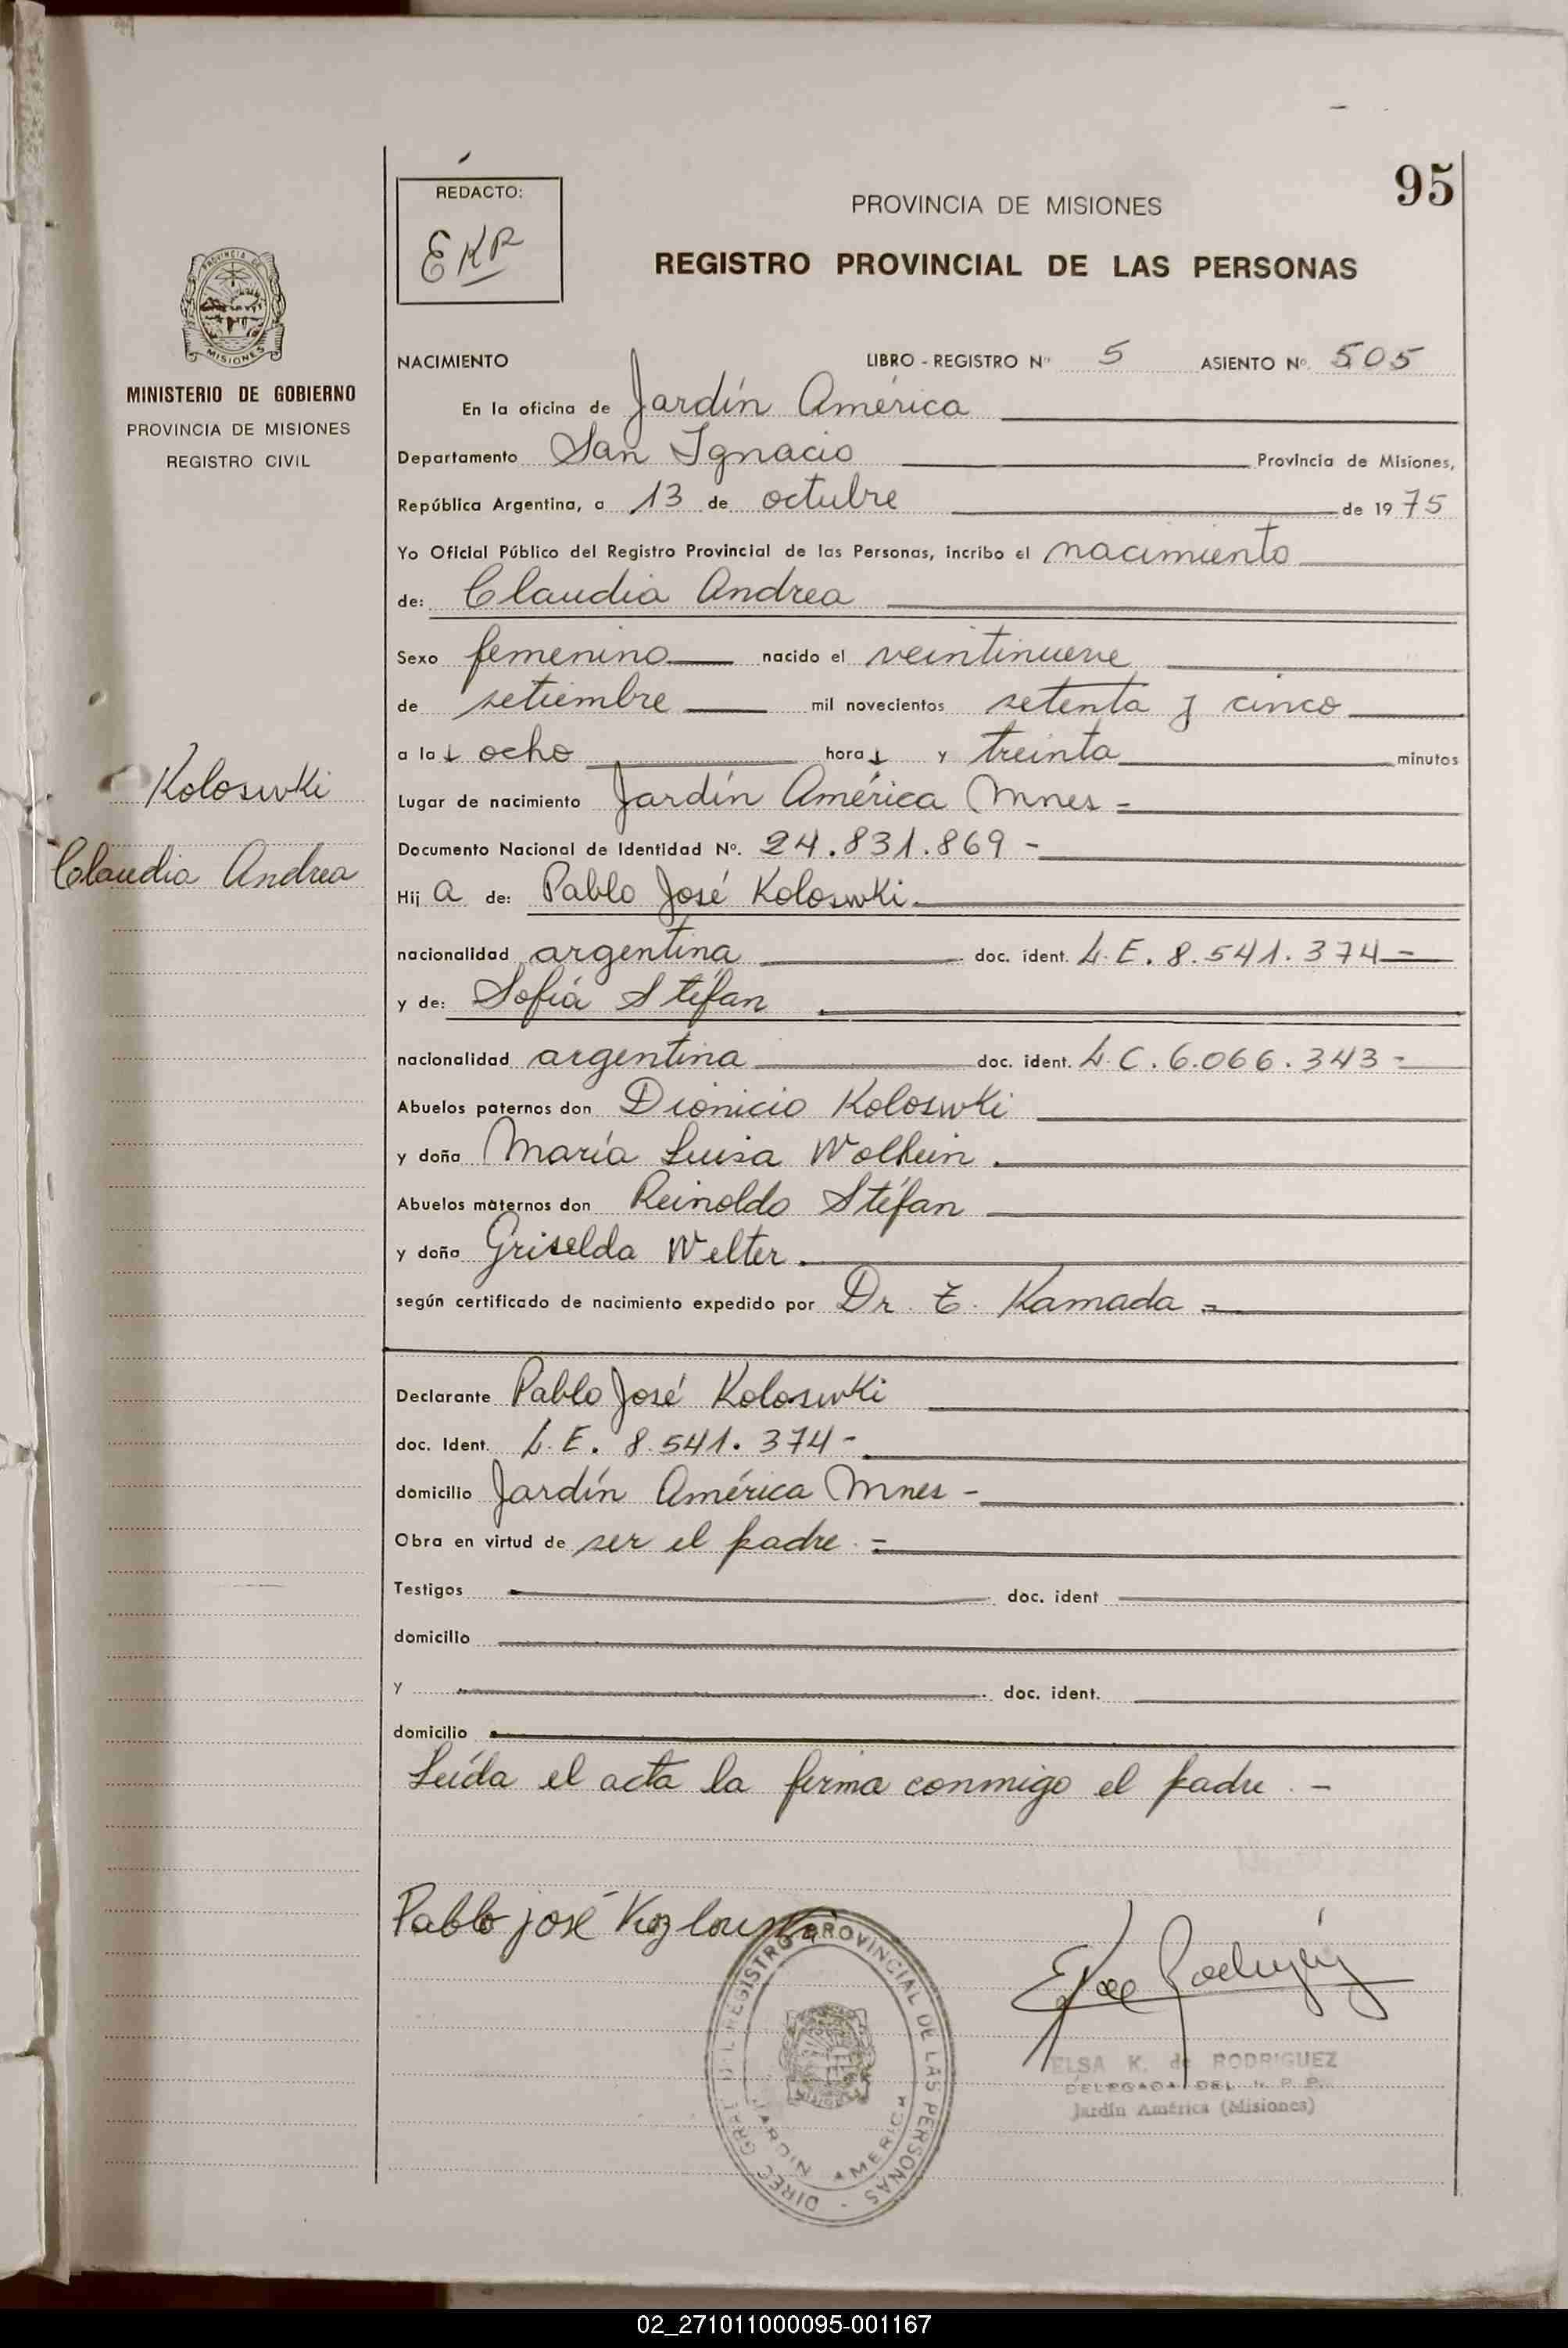 95
REDACTO:
EKR
PROVINCIA DE MISIONES
REGISTRO PROVINCIAL DE LAS PERSONAS
PROVINCIA DE
MISIONES
MINISTERIO DE GOBIERNO
PROVINCIA DE MISIONES
REGISTRO CIVIL
NACIMIENTO LIBRO - REGISTRO Nº 5 ASIENTO Nº. 505
En la oficina de Jardín América
Departamento San Ignacio Provincia de Misiones,
República Argentina, a 13 de octubre de 1975
Yo Oficial Público del Registro Provincial de las Personas, incribo el nacimiento
de: Claudia Andrea
Sexo femenino nacido el veintinueve
de setiembre mil novecientos setenta y cinco
a las ocho horas y treinta minutos
Koloswki
Lugar de nacimiento Jardín América Mnes -
Documento Nacional de Identidad Nº. 24.831.869 -
Claudia Andrea
Hija de: Pablo José Koloswki.
nacionalidad argentina doc. ident. L.E. 8.541.374 -
y de: Sofía Stéfan
nacionalidad argentina doc. ident. L.C. 6.066.343 -
Abuelos paternos don Dionicio Koloswki
y doña María Luisa
Abuelos maternos don Reinoldo Stéfan
y doña Griselda Welter.
según certificado de nacimiento expedido por Dr. Kamada -
Declarante Pablo José Koloswki
doc. Ident. L.E. 8.541.374 -
domicilio Jardín América Mnes -
Obra en virtud de ser el padre. -
Testigos doc. ident
domicilio
y doc. ident.
domicilio
Leída el acta la firma conmigo el padre. -
Pablo josé
DIREC. GRAL. DEL REGISTRO PROVINCIAL DE LAS PERSONAS -
JARDIN AMERICA
ELSA K. de RODRIGUEZ
DELEGADA DEL R. P. P.
Jardín América (Misiones)
02_271011000095-001167